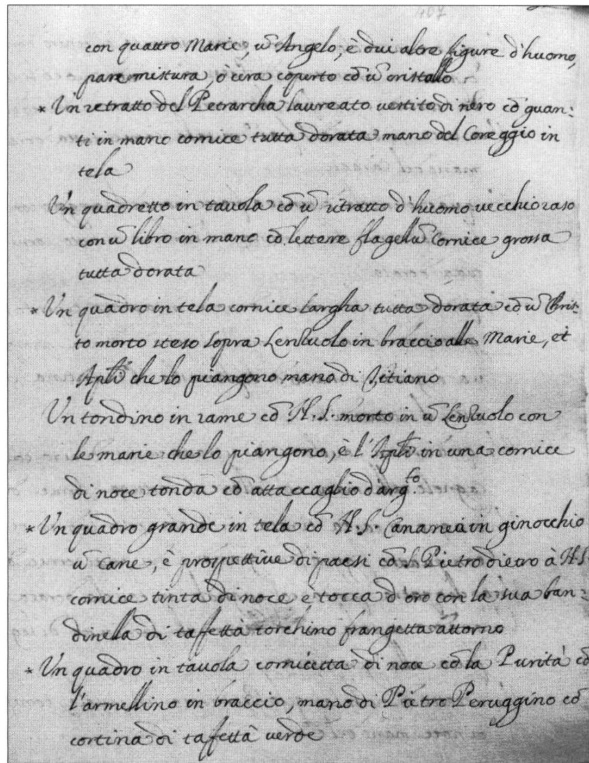 407
con quattro Marie, ũ Angelo, è dui altre figure d'huomo,
pare mistura, ò cira coperto cõ ũ cristallo
* Un retratto del Petrarcha laureato vestito di nero cõ guan:
ti in mano cornice tutta dorata mano del Coreggio in
tela
Un quadretto in tauola cõ ũ ritratto d'huomo uecchio raso
con ũ libro in mano cõ lettere flagellũ Cornice grossa
tutta dorata
* Un quadro in tela cornice largha tutta dorata cõ ũ Cris:
to morto steso sopra Lenzuolo in braccio alle Marie, et
Apli che lo piangono mano di Titiano
Un tondino in rame cõ N. S. morto in ũ Lenzuolo con
le marie che lo piangono, è l'Apli in una cornice
di noce tonda cõ attaccaglio d'argto
* Un quadro grande in tela cõ N. S. Cananea in ginocchio
ũ cane, è prospettive di paesi cõ S. Pietro dietro à N.S.
cornice tinta di noce e tocca d'oro con la sua ban:
dinella di taffettà torchino frangetta attorno
* Un quadro in tauola cornicetta di noce cõ la Purità cõ
l'armellino in braccio, mano di Pietro Peruggino cõ
cortina di taffettà uerde